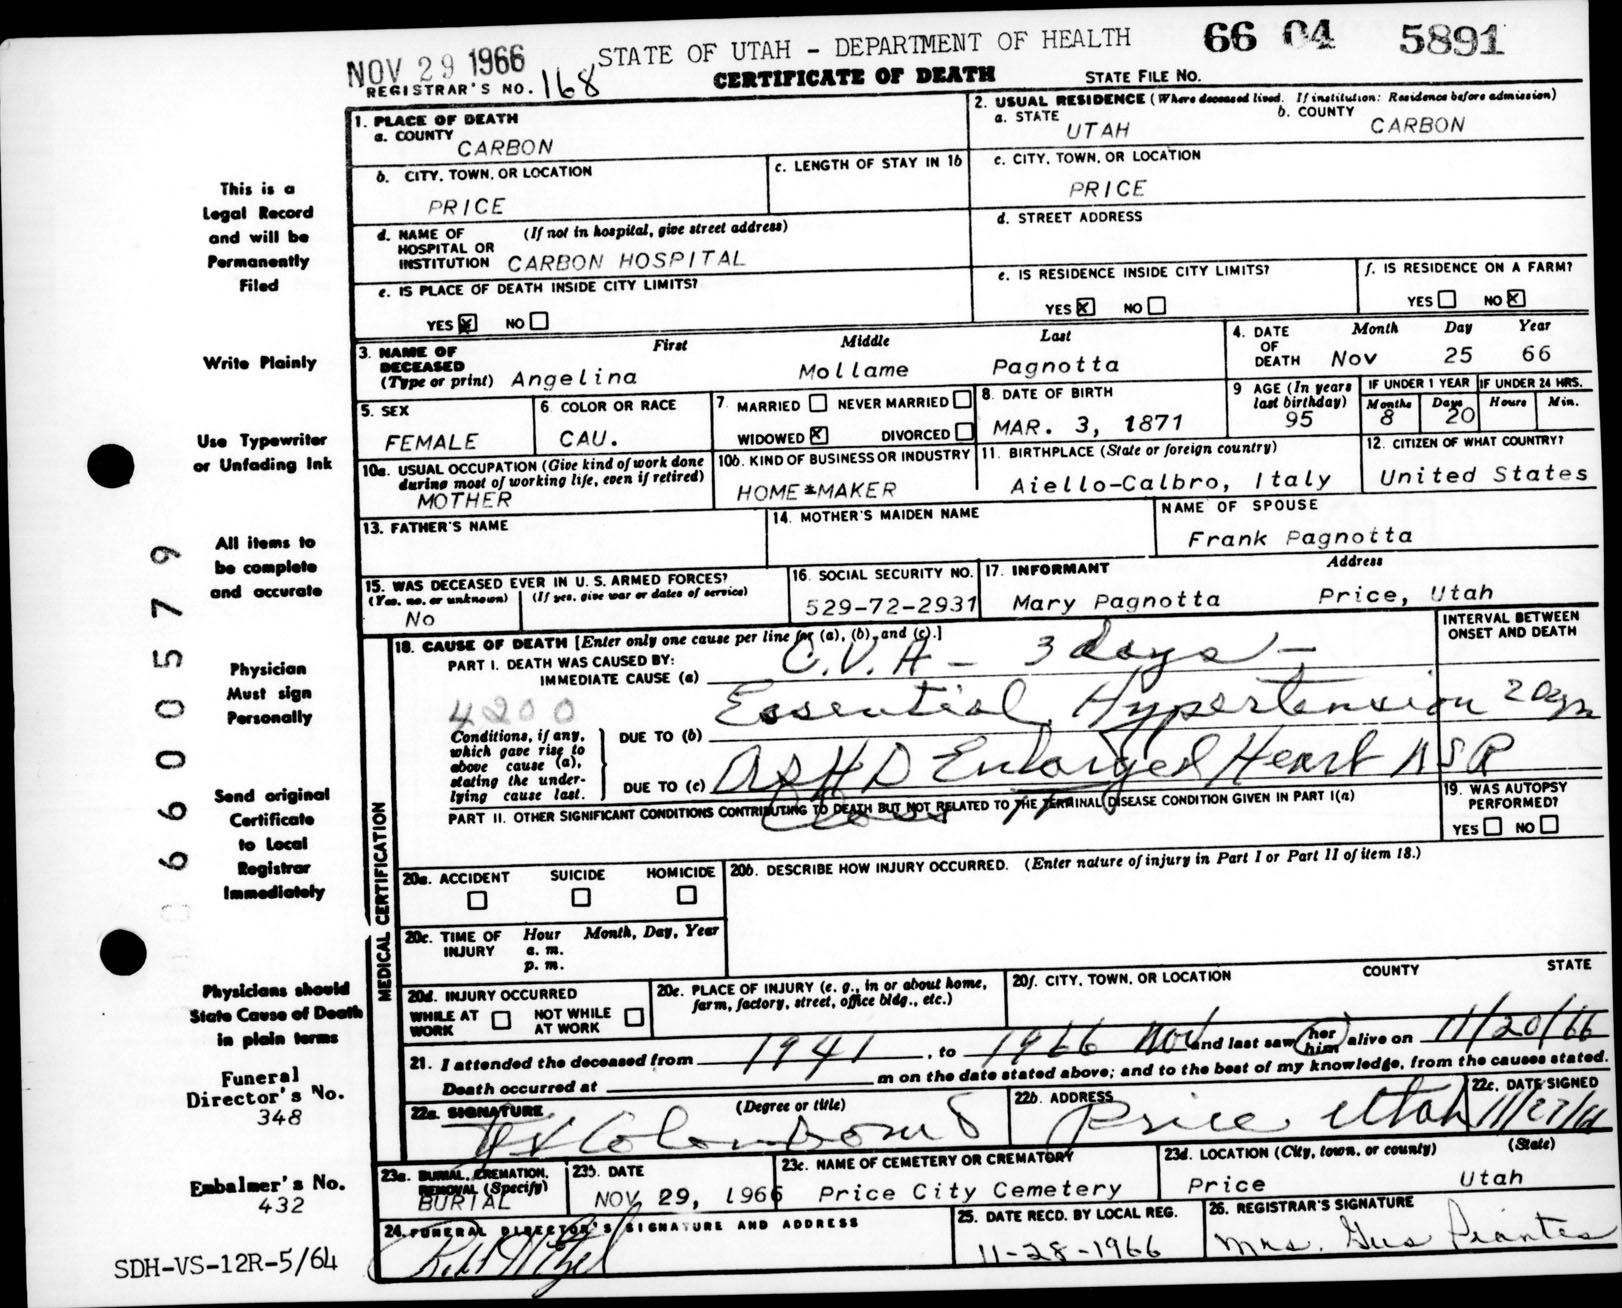 NOV 29 1966 STATE OF UTAH - DEPARTMENT OF HEALTH 66 04 5891
REGISTRAR'S NO. 168 CERTIFICATE OF DEATH STATE FILE NO.
1. PLACE OF DEATH
a. COUNTY
CARBON
2. USUAL RESIDENCE (Where deceased lived. If institution: Residence before admission)
a. STATE b. COUNTY
UTAH CARBON
b. CITY, TOWN, OR LOCATION c. LENGTH OF STAY IN 1b
PRICE
c. CITY, TOWN, OR LOCATION
PRICE
d. NAME OF HOSPITAL OR INSTITUTION (If not in hospital, give street address)
CARBON HOSPITAL
d. STREET ADDRESS
e. IS PLACE OF DEATH INSIDE CITY LIMITS?
YES X NO
e. IS RESIDENCE INSIDE CITY LIMITS? f. IS RESIDENCE ON A FARM?
YES X NO YES NO X
3. NAME OF DECEASED (Type or print) First Middle Last
Angelina Mollame Pagnotta
4. DATE OF DEATH Month Day Year
Nov 25 66
5. SEX
FEMALE
6. COLOR OR RACE
CAU.
7. MARRIED NEVER MARRIED
WIDOWED X DIVORCED
8. DATE OF BIRTH
MAR. 3, 1871
9 AGE (In years last birthday)
95
IF UNDER 1 YEAR IF UNDER 24 HRS.
Months Days Hours Min.
8 20
10a. USUAL OCCUPATION (Give kind of work done during most of working life, even if retired)
MOTHER
10b. KIND OF BUSINESS OR INDUSTRY
HOME*MAKER
11. BIRTHPLACE (State or foreign country)
Aiello-Calbro, Italy
12. CITIZEN OF WHAT COUNTRY?
United States
13. FATHER'S NAME
14. MOTHER'S MAIDEN NAME
NAME OF SPOUSE
Frank Pagnotta
15. WAS DECEASED EVER IN U. S. ARMED FORCES?
(Yes, no, or unknown) (If yes, give war or dates of service)
No
16. SOCIAL SECURITY NO.
529-72-2931
17. INFORMANT Address
Mary Pagnotta Price, Utah
18. CAUSE OF DEATH [Enter only one cause per line for (a), (b), and (c).]
INTERVAL BETWEEN ONSET AND DEATH
PART I. DEATH WAS CAUSED BY:
IMMEDIATE CAUSE (a) C.V.A - 3 days -
4200
Conditions, if any, which gave rise to above cause (a), stating the underlying cause last.
DUE TO (b) Essential Hypertension
DUE TO (c) ASHD Enlarged Heart
PART II. OTHER SIGNIFICANT CONDITIONS CONTRIBUTING TO DEATH BUT NOT RELATED TO THE TERMINAL DISEASE CONDITION GIVEN IN PART I(a)
19. WAS AUTOPSY PERFORMED?
YES NO
MEDICAL CERTIFICATION
20a. ACCIDENT SUICIDE HOMICIDE
20b. DESCRIBE HOW INJURY OCCURRED. (Enter nature of injury in Part I or Part II of item 18.)
20c. TIME OF INJURY Hour Month, Day, Year
a. m.
p. m.
20d. INJURY OCCURRED
WHILE AT WORK NOT WHILE AT WORK
20e. PLACE OF INJURY (e. g., in or about home, farm, factory, street, office bldg., etc.)
20f. CITY, TOWN, OR LOCATION COUNTY STATE
21. I attended the deceased from 1941, to 1966 Nov and last saw her him alive on 11/20/66
Death occurred at m on the date stated above; and to the best of my knowledge, from the causes stated.
22a. SIGNATURE (Degree or title)
22b. ADDRESS
Price Utah
22c. DATE SIGNED
11/27/66
23a. BURIAL, CREMATION, REMOVAL (Specify)
BURIAL
23b. DATE
NOV 29, 1966
23c. NAME OF CEMETERY OR CREMATORY
Price City Cemetery
23d. LOCATION (City, town, or county) (State)
Price Utah
24. FUNERAL DIRECTOR'S SIGNATURE AND ADDRESS
25. DATE RECD. BY LOCAL REG.
11-28-1966
26. REGISTRAR'S SIGNATURE
Mrs. Gus
This is a
Legal Record
and will be
Permanently
Filed
Write Plainly
Use Typewriter
or Unfading Ink
All items to
be complete
and accurate
Physician
Must sign
Personally
Send original
Certificate
to Local
Registrar
Immediately
Physicians should
State Cause of Death
in plain terms
Funeral
Director's No.
348
Embalmer's No.
432
SDH-VS-12R-5/64
6600579